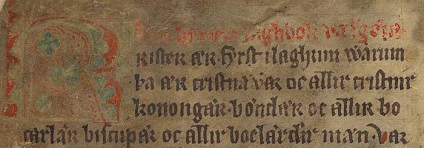 laghbok
rister ær fyrst i laghum warum
þa ær cristna var oc allir cristnir
konongær· bøndær oc allir bo
carlær biscupær oc allir boclærdir mæn· var